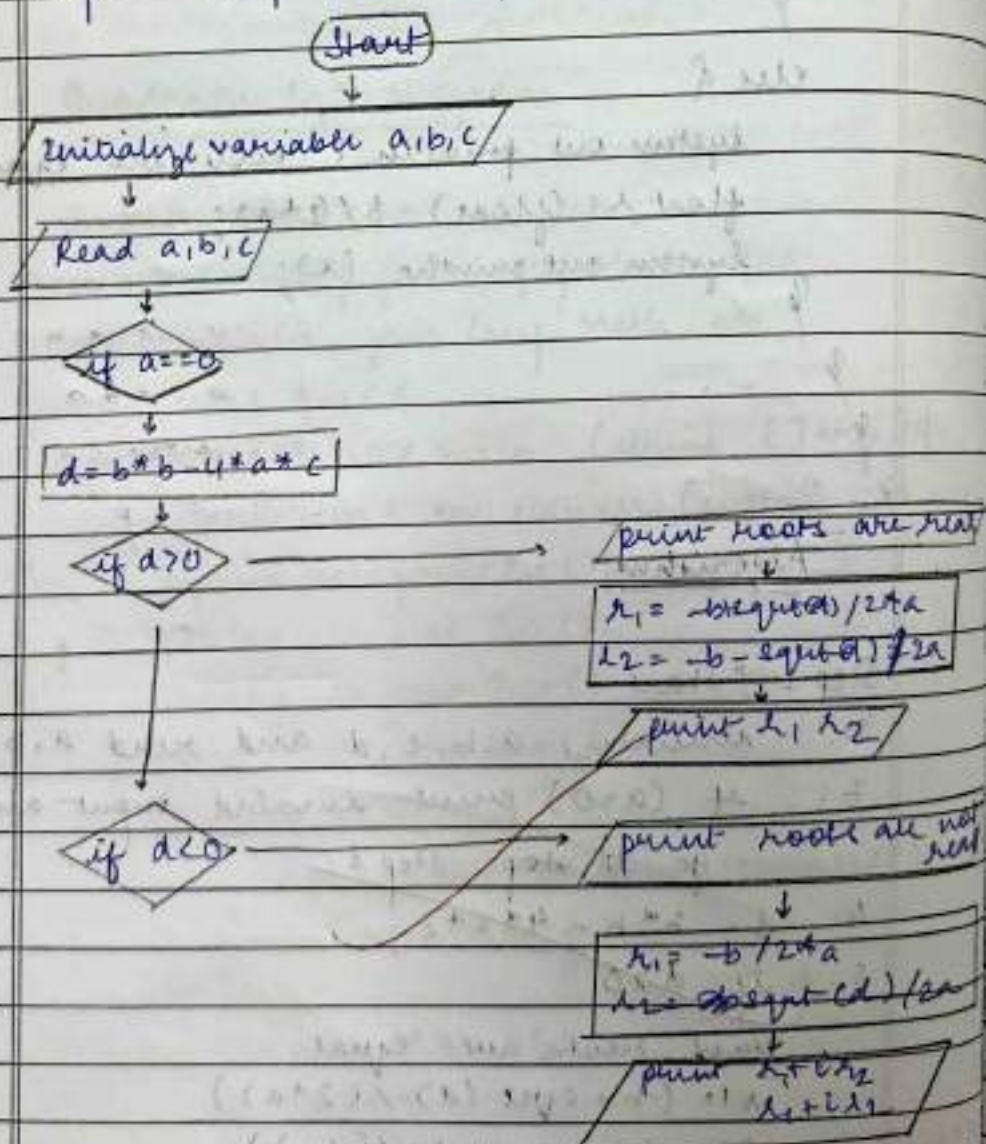 Start
Initialize variable a,b,c
Read a,b,c
if a==0
d=b*b-4*a*c
if d>0
print roots are real
r1 = -b+sqrt(d)/2*a
r2 = -b-sqrt(d)/2a
print r1 r2
if d<0
print roots are not real
r1 = -b/2*a
r2 = sqrt(d)/2a
print r1+ir2
r1+ir2